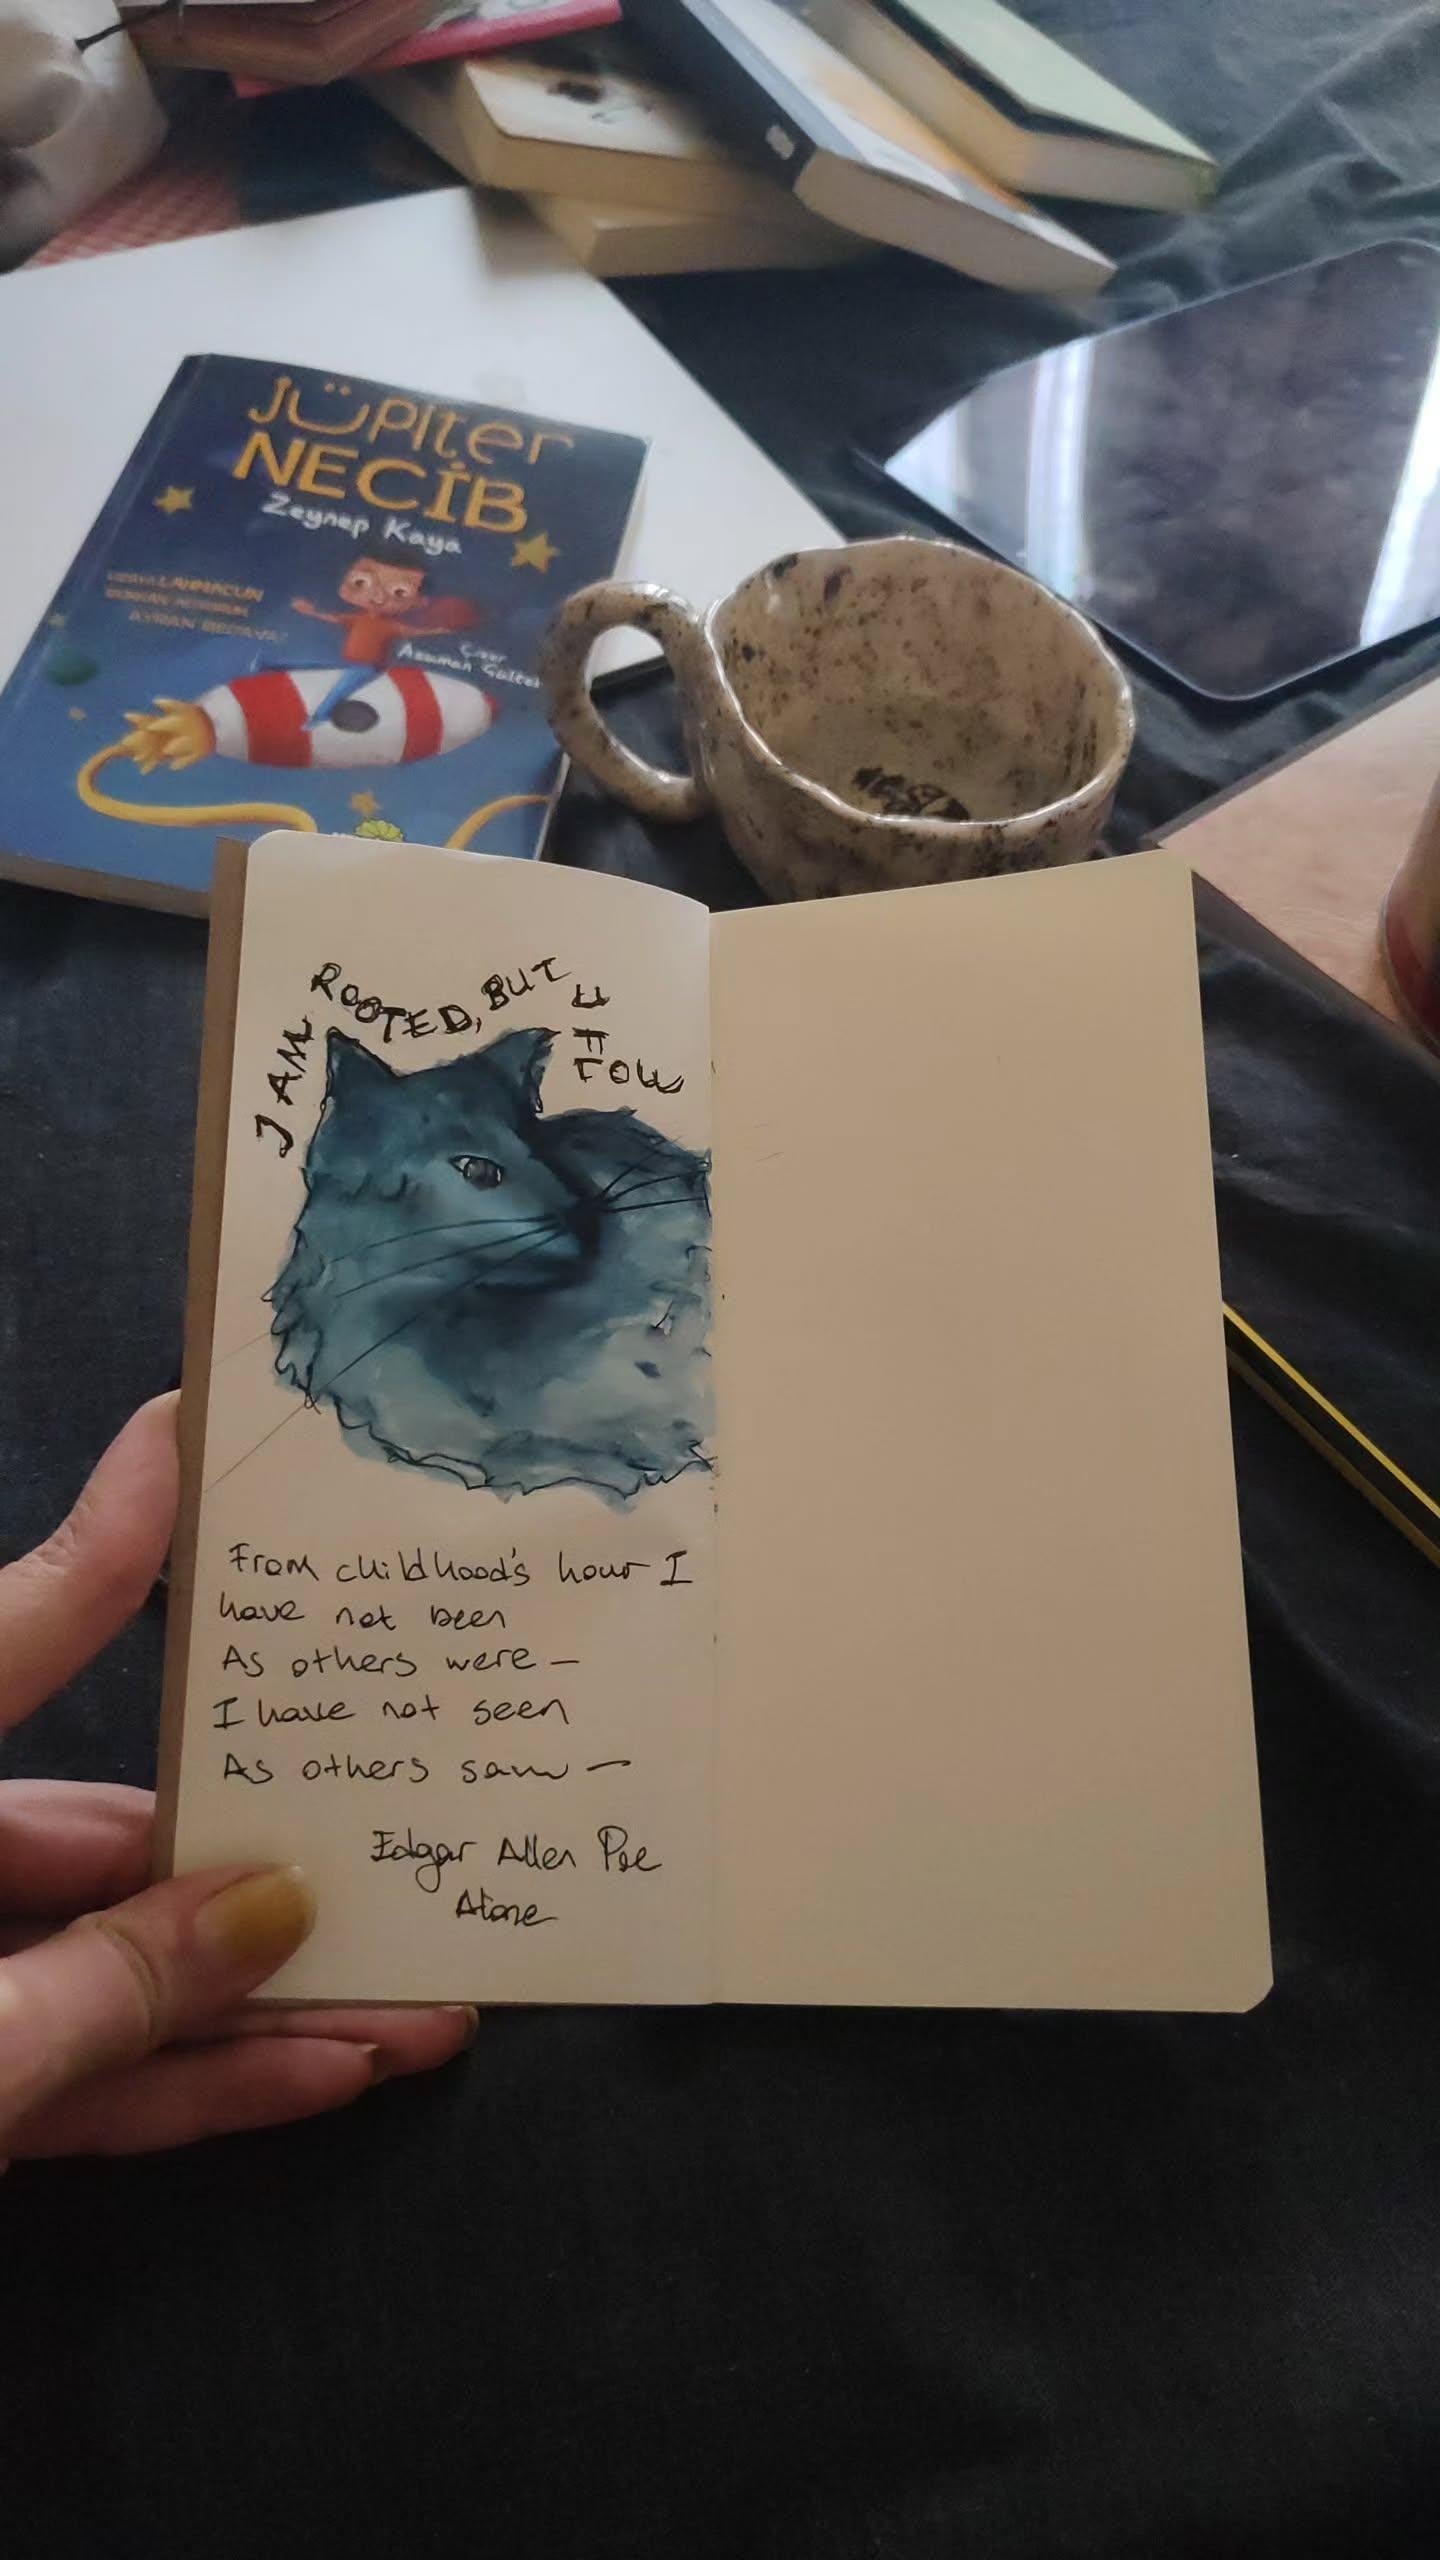 JÜPİTER
NECİB
Zeynep Kaya
UZAYA LAHMACUN
AYRAN BEDAVA!
Çizer
I AM ROOTED, BUT I FLOW
From childhood's hour I
have not been
As others were —
I have not seen
As others saw —
Edgar Allen Poe
Alone